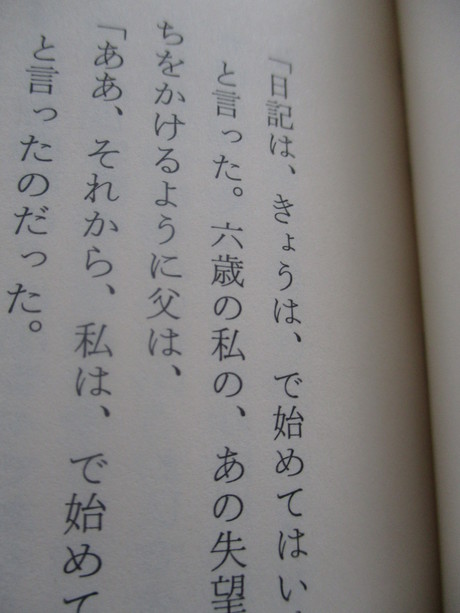 「日記は、きょうは、で始めてはい
と言った。六歳の私の、あの失望
ちをかけるように父は、
「ああ、それから、私は、で始めて
と言ったのだった。